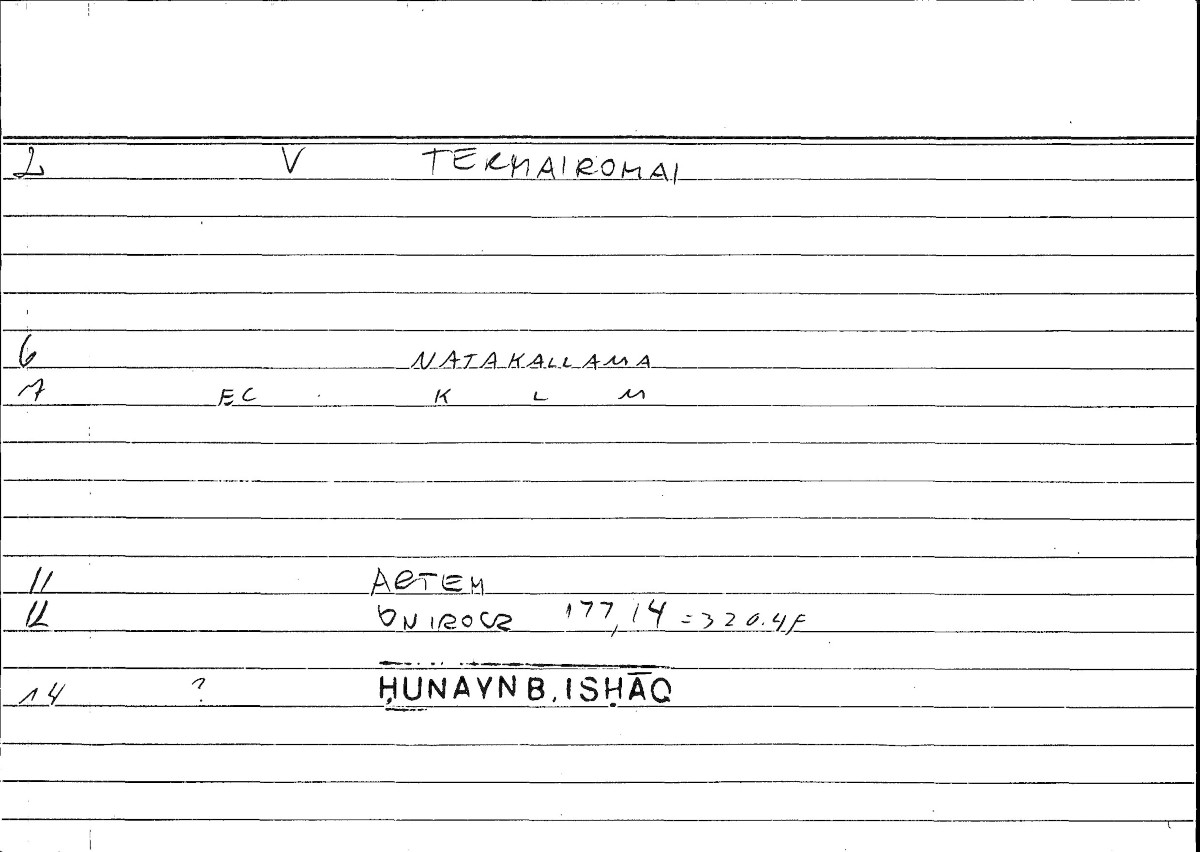 2 V TEKMAIROMAI
6 NATAKALLAMA
7 EC K L M
11 ARTEM
12 ONIROCR 177,14 = 320.4F
14 ? ḤUNAYN B. ISḤĀQ